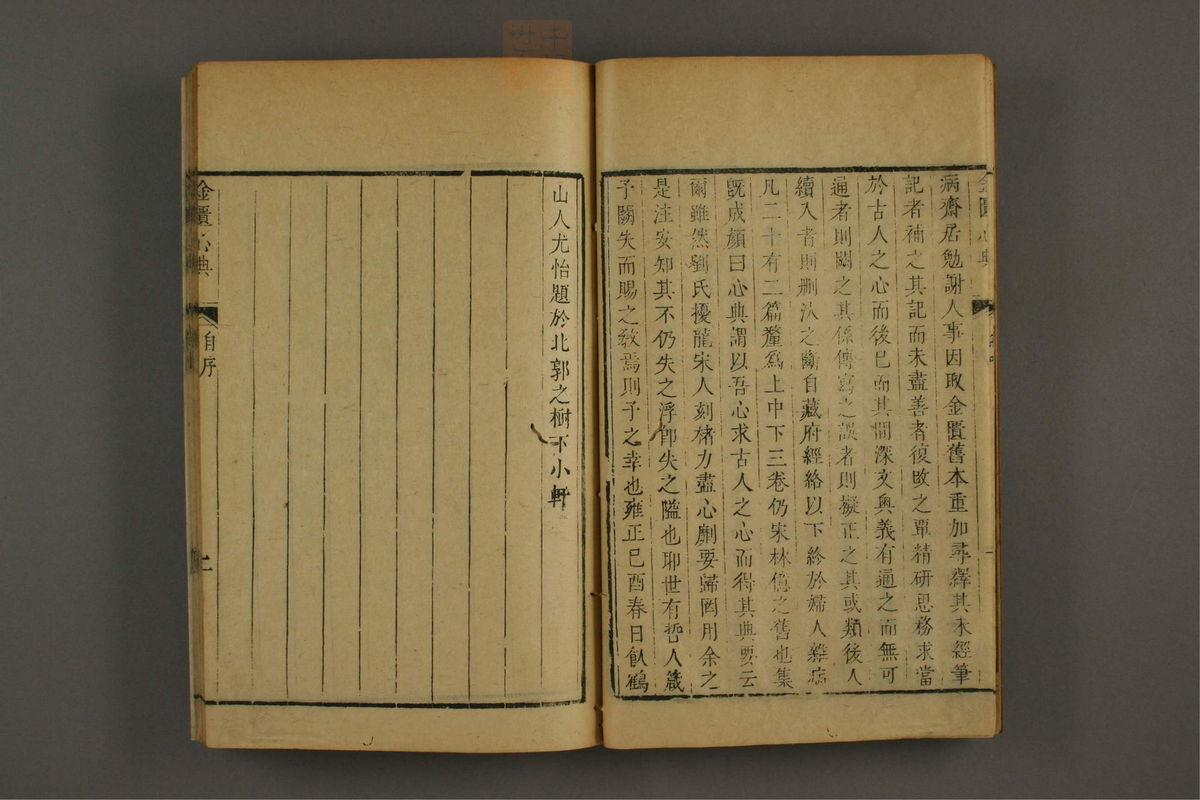 病齋居勉謝人事因取金匱舊本重加尋繹其未經筆
記者補之其記而未盡善者復改之覃精研思務求當
於古人之心而後已而其間深文奧義有通之而無可
通者則闕之其係傳寫之誤者則擬正之其或類後人
續入者則刪汰之斷自藏府經絡以下終於婦人雜病
凡二十有二篇釐為上中下三卷仍宋林億之舊也集
既成顔曰心典謂以吾心求古人之心而得其典要云
爾雖然劉氏擾龍宋人刻楮力盡心劘要歸罔用余之
是注安知其不仍失之浮卽失之隘也耶世有哲人箴
予闕失而賜之教焉則予之幸也雍正己酉春日飲鶴
山人尤怡題於北郭之樹下小軒
金匱心典
自序
二